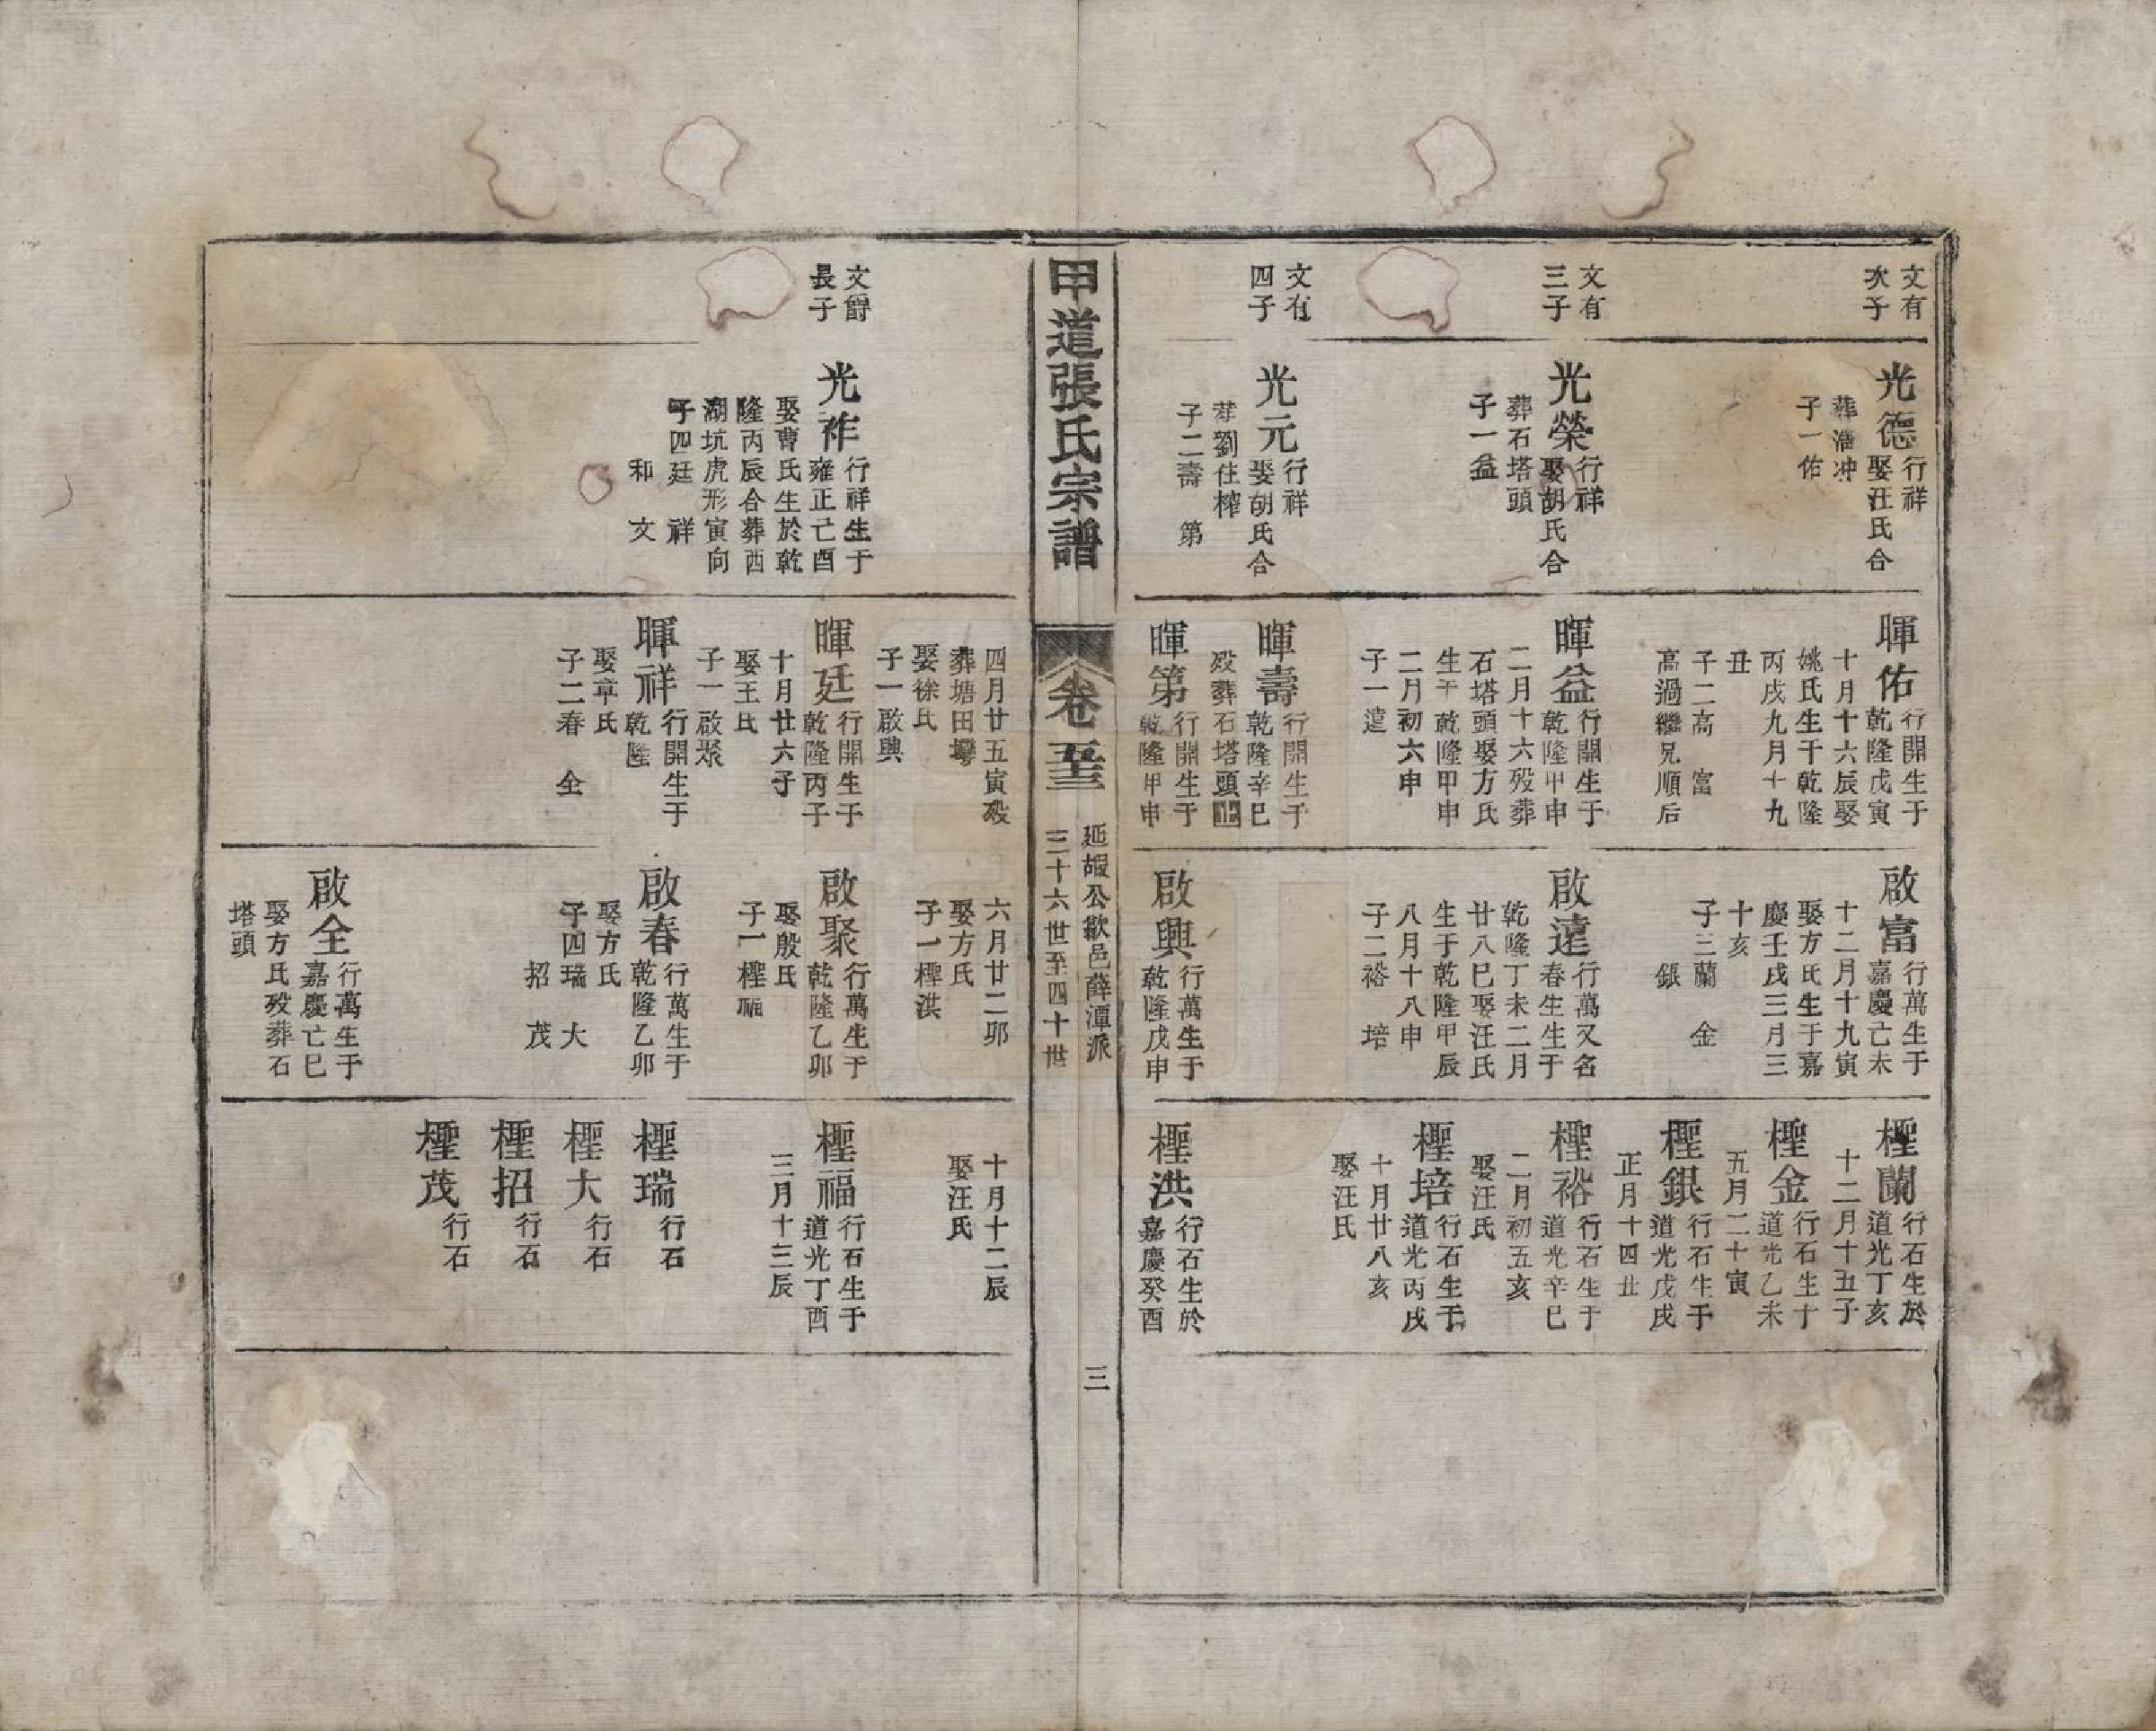 文有
次子
文有
三子
文有
四子
光德
行祥
娶汪氏合
葬潘冲
子一佑
光榮
行祥
娶胡氏合
葬石塔頭
子一益
光元
行祥
娶胡氏合
葬劉住榨
子二壽 第
暉佑
行開生于
乾隆戊寅
十月十六辰娶
姚氏生于乾隆
丙戌九月十九
丑
子二高 富
高過繼兄順后
暉益
行開生于
乾隆甲申
二月十六歿葬
石塔頭娶方氏
生于乾隆甲申
二月初六申
子一遠
暉壽
行開生于
乾隆辛巳
歿葬石塔頭止
暉第
行開生于
乾隆甲申
啟富
行萬生于
嘉慶亡未
十二月十九寅
娶方氏生于嘉
慶壬戌三月三
十亥
子三蘭 金
銀
啟遠
行萬又名
春生生于
乾隆丁未二月
廿八巳娶汪氏
生于乾隆甲辰
八月十八申
子二裕 培
啟興
行萬生于
乾隆戊申
檉蘭
行石生於
道光丁亥
十二月十五子
檉金
行石生于
道光乙未
五月二十寅
檉銀
行石生于
道光戊戌
正月十四丑
檉裕
行石生于
道光辛巳
二月初五亥
娶汪氏
檉培
行石生于
道光丙戌
十月廿八亥
娶汪氏
檉洪
行石生於
嘉慶癸酉
甲道張氏宗譜
卷五十三
延嘏公歙邑薛潭派
三十六世至四十世
三
文爵
長子
光祚
行祥生于
雍正亡酉
娶曹氏生於乾
隆丙辰合葬西
湖坑虎形寅向
子四廷 祥
和 文
四月廿五寅歿
葬塘田塆
娶徐氏
子一啟興
暉廷
行開生于
乾隆丙子
十月廿六子
娶王氏
子一啟聚
暉祥
行開生于
乾隆
娶章氏
子二春 全
六月廿二卯
娶方氏
子一檉洪
啟聚
行萬生于
乾隆乙卯
娶殷氏
子一檉福
啟春
行萬生于
乾隆乙卯
娶方氏
子四瑞 大
招 茂
啟全
行萬生于
嘉慶亡巳
娶方氏歿葬石
塔頭
十月十二辰
娶汪氏
檉福
行石生于
道光丁酉
三月十三辰
檉瑞
行石
檉大
行石
檉招
行石
檉茂
行石